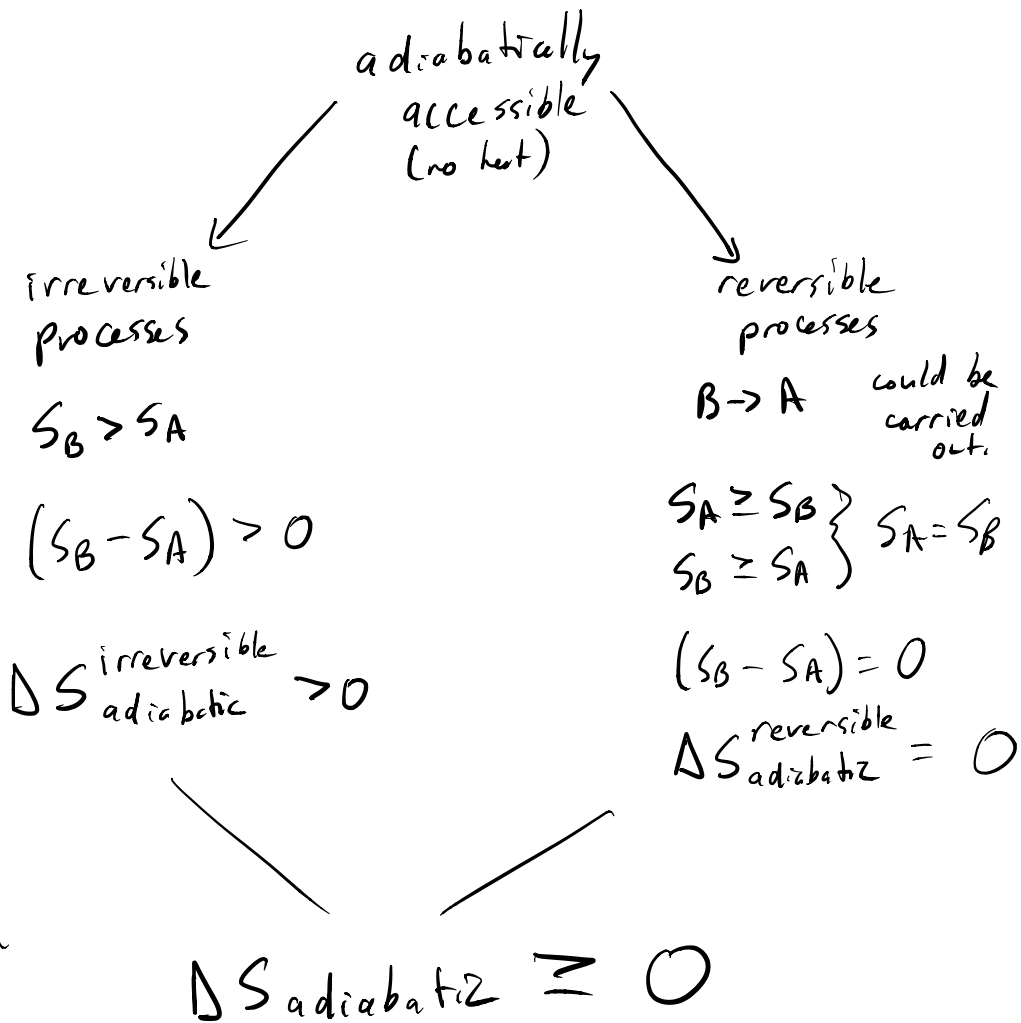 adiabatically
accessible
(no heat)
irreversible
processes
S_B > S_A
(S_B - S_A) > 0
ΔS^irreversible_adiabatic > 0
reversible
processes
B → A
could be
carried
out.
S_A ≥ S_B
S_B ≥ S_A
} S_A = S_B
(S_B - S_A) = 0
ΔS^reversible_adiabatic = 0
ΔS_adiabatic ≥ 0